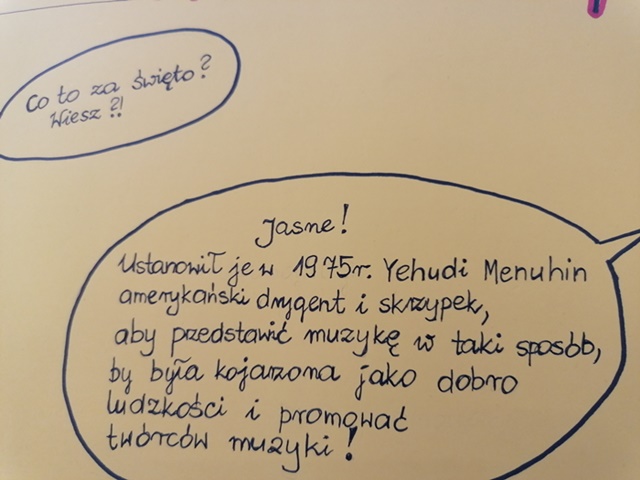 Co to za święto?
Wiesz ?!
Jasne!
Ustanowił je w 1975r. Yehudi Menuhin
amerykański dyrygent i skrzypek,
aby przedstawić muzykę w taki sposób,
by była kojarzona jako dobro
ludzkości i promować
twórców muzyki!